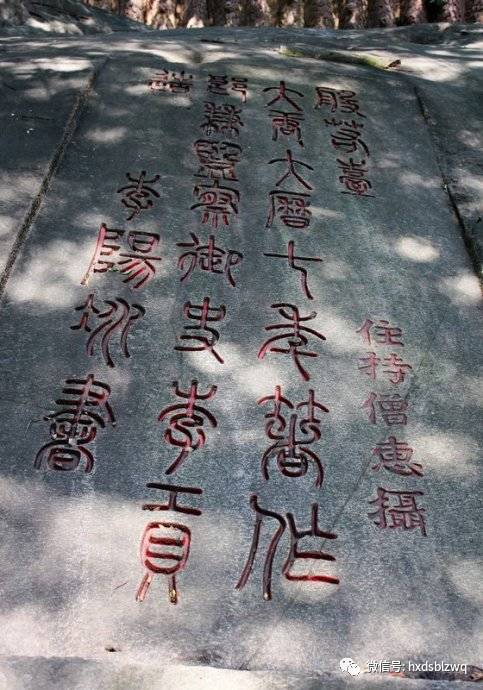 般若臺
住持僧惠攝
大唐大曆七年著作
郎兼監察御史李貢
造
李陽冰書
微信号: hxdsblzwq